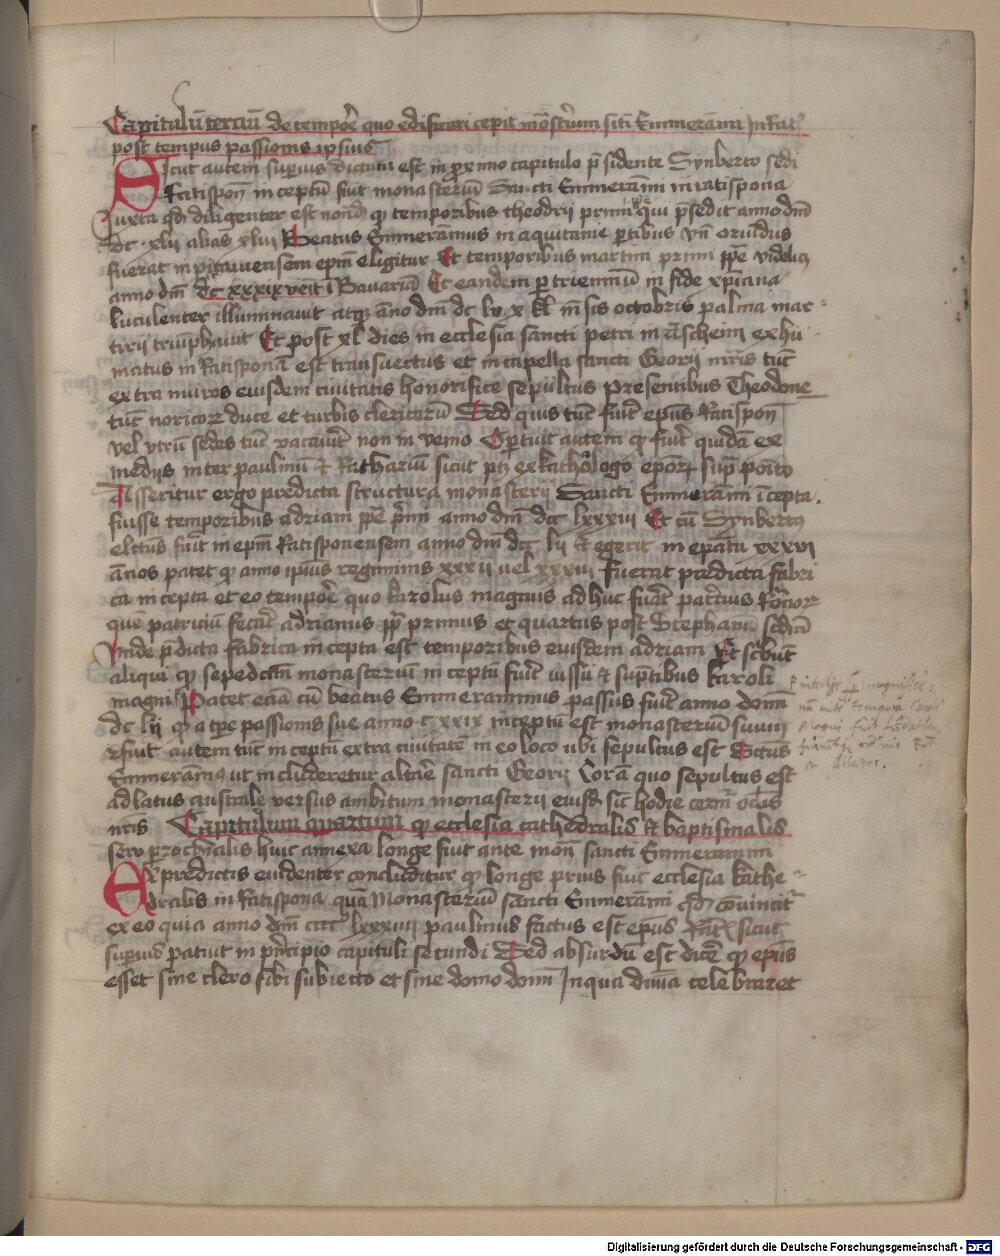 Capitulū terciū de tempoꝛe quo edificari cepit mōsteriū sāti Emmerāmi in Rat̄
post tempus passionis ipsius
Sicut autem superius dictum est in ꝓximo capitulo p̄sidente Synberto sedi
Ratispoñ inceptū fuit monasteriū Sancti Emmerāmi in ratispona
Juxta diligenter est ꝙ temporibus theodrii primi qui p̄sedit anno dm̄
dc xlii alias xliii Beatus Emmerāmus in aquitanie ꝑtibus vn̄ oriūdus
fuerat in pictauiensem epm̄ eligitur Et temporibus martini primi ppe videlicꝫ
anno dm̄ dc xxxix veit ī Bauariā Et eandem ꝑ trienniū in fide xp̄iana
luculenter illuminauit atqꝫ āno dm̄ dc lii x kl̄ mēsis octobris palma mar-
tirii triūphauit Et post xl dies in ecclesia sancti petri in ascheim exhu
matus in Ratisponā est transuectus et in capella sancti Georii mr̄is tūc
extra muros eiusdem ciuitatis honorifice sepultus presentibus Theodone
tūc noricoꝝ duce et turbis clericorū Sed quis tūc fuit ep̄us Ratispoñ
vel vtrū sedes tūc vacauit non inuenio Oportuit autem ꝙ fuit quidā ex
medijs inter paulinū et Ratharium sicut ptꝫ ex kathologo epoꝝ sup̄ poito
Asseritur ergo predicta structura monasterij Sancti Emmerāmi īcepta
fuisse temporibus adriani ppe p̄mi anno dm̄ dcc lxxxiii Et cū Synbertꝰ
electus fuit in epm̄ Ratisponensem anno dm̄ dcc lii et egerit in epatu xxxvi
ānos patet ꝙ anno ipsius regiminis xxxii uel xxxiii fuerat predicta fabri
ca incepta et eo tempoꝛe quo karolus magnus adhuc fuit patricius Romoꝝ
quē patriciū fecit adrianus pp̄ primus et quartus post Stephanū scdm̄
Unde p̄dicta fabrica incepta est temporibus eiusdem adriani Et scbūt
aliqui ꝙ sepedictm̄ monasteriū inceptū fuit iussu et sūptibus karoli
magni Patet eciā cū beatus Emmerammus passus fuit anno domī
dc lii ꝙ a tpe passionis sue anno cxxix inceptū est monasteriū suum
fuit autem tūc inceptū extra ciuitatē in eo loco ubi sepultus est Sctus
Emmerāmꝰ ut includeretur altare sancti Georii Cora quo sepultus est
ad latus australe versus ambitum monasterij eiusd̄ sic hodie cernit̄ oclis
nr̄is Capitulum quartum ꝙ ecclesia cathedralis et baptismalis
seu ꝑrochialis huic annexa longe fuit ante moñ sancti Emmerammi
Ex predictis euidenter concluditur ꝙ longe prius fuit ecclesia kathe-
dralis in Ratispona quā Monasteriū sancti Emmerāmi qd̄ conuincit̄
ex eo quia anno dm̄ cccc lxxxiiii paulinus factus est ep̄us Rat̄ sicut
superius patuit in p̄ncipio capituli secundi Sed absurdū est dicē ꝙ ep̄us
esset sine clero sibi subiecto et sine domo domī In qua diuīa celebraret
Digitalisierung gefördert durch die Deutsche Forschungsgemeinschaft - DFG